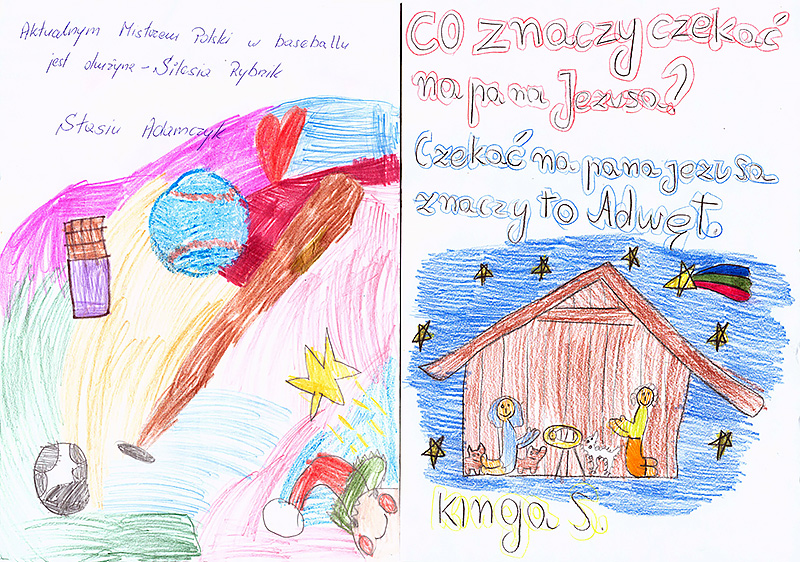 Aktualnym Mistrzem Polski w baseballu
jest drużyna – Silesia Rybnik
Stasiu Adamczyk
CO znaczy czekać
na pana Jezusa?
Czekać na pana jezusa
znaczy to Adwęt.
Kinga S.